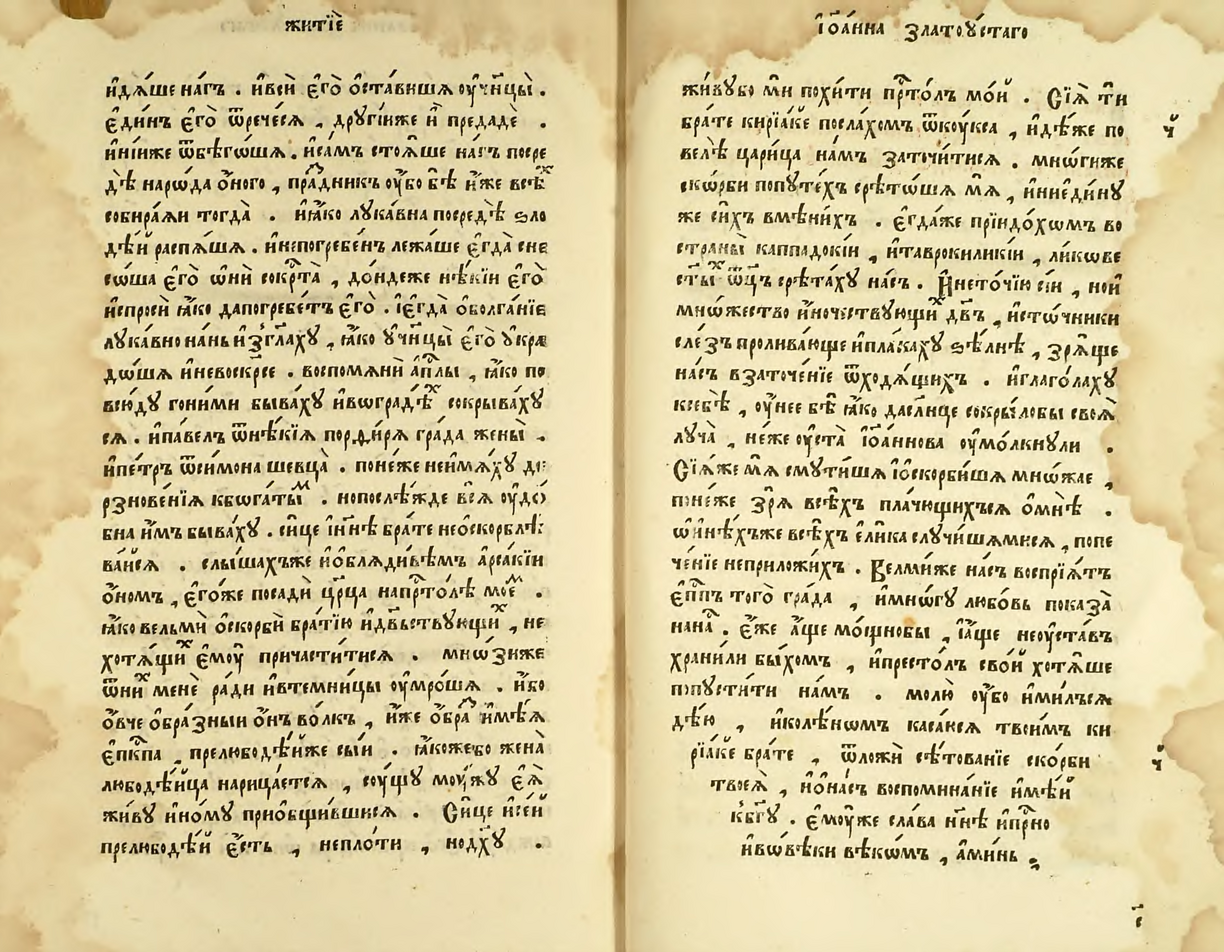 житїѐ
и҆дѧ́ше на́гъ . и҆всѝ є҆го̀ ѡ҆ста́вишѧ ᲂу҆чн҃цы̀ .
є҆ди́нъ є҆го̀ ѿречесѧ , дрꙋгі́иже и҆ предадѐ .
и҆ні́иже ѿбѣго́шѧ . и҆са́мъ стоѧ́ше на́гъ посре
дѣ̀ наро́да ѻ҆ного , пра́здникъ ᲂу҆бо бѣ̀ и҆же всѣ́х
собира́ѧи тогда̀ . и҆ꙗ҆́ко лꙋка́вна посредѣ̀ ѕло
дѣ́й распѧ́шѧ . и҆непогребе́нъ лежа́ше є҆гда̀ сне
со́ша є҆го̀ ѡ҆нѝ сокр҇та̀ , до́ндеже нѣ́кїи є҆го̀
и҆спросѝ ꙗ҆́ко дапогребе́тъ є҆го̀ . і҆є҆гда̀ ѻ҆болга́нїе
лꙋка́вно на́нь и҆зг҃лахꙋ , ꙗ҆́ко ᲂу҆чн҃цы̀ є҆го̀ ᲂу҆кра
до́шѧ и҆невоскр́есе . воспомѧнѝ а҆пⷭ҇лы , ꙗ҆́ко по
всю́дꙋ гони́ми быва́хꙋ и҆вѡгра́дѣх сокрыва́хꙋ
сѧ . и҆па́велъ ѿнѣ́кїѧ порфи́рѧ гра́да жены̀ .
и҆пе́тръ ѿси́мона шевца̀ . поне́же неи҆мѧ́хꙋ де
рзнове́нїѧ кбѡга́тым . нопослѣ́жде всѧ̀ ᲂу҆до́
бна и҆́мъ быва́хꙋ . си́це і҆нн҃ѣ бра́те неѡ҆скорблѣ́
ва́йсѧ . слы́шахъже и҆ѡ҆блѧди́вѣмъ а҆рса́кїи
ѻ҆́номъ , є҆го́же посадѝ цр҃ца напр҇то́лѣ мое́м .
ꙗ҆́ко вельмѝ ѡ҆скорбѝ бра́тїю и҆дв҃ьствꙋющих , не
хотѧ́щих є҆мᲂу̀ причасти́тисѧ . мно́зиже
ѿних менѐ ра́ди и҆втемни́цы ᲂу҆мро́шѧ . и҆́бо
ѻ҆вче ѻ҆бра́зныи ѻ҆́нъ во́лкъ , и҆́же ѻ҆́бра и҆мѣ́ѧ
є҆пк҃па , прелюбодѣ́йже сы́и . ꙗ҆́коже́бо жена̀
любодѣ́ица нарица́етсѧ , со́ꙋщꙋ мо́ꙋжꙋ є҆ѧ̀
жи́вꙋ и҆но́мꙋ приѡ҆бщи́вшисѧ . Си́це и҆се́й
прелюбодѣ́й є҆́сть , непло́ти , нодх҃ꙋ .
і҆ѡ҆а́нна златоꙋ́стаго
жи́вꙋбо мѝ похи́ти пр҇то́лъ мо́й . Сїѧ̀ ти
бра́те кирїа́ке посла́хомъ ѿкоꙋ́кса , и҆дѣ́же по
велѣ̀ цари́ца на́мъ заточи́тисѧ . мно́гиже
ско́рби попꙋте́хъ срѣто́шѧ мѧ̀ , и҆ниеди́нꙋ
же си́хъ вмѣни́хъ . є҆гда́же прїидо́хѡмъ во
страны̀ каппадокі́и , и҆таврокиликі́и , ли́кѡве
ст҃ых ѿц҃ъ срѣта́хꙋ на́съ . И҆нето́чїю сі́и , но́и
мно́жество и҆ночествꙋющих дв҃ъ , и҆сто́чники
сле́зъ пролива́юще и҆пла́кахꙋ ѕѣлнѣ̀ , зрѧ́ще
на́съ взаточе́нїе ѿходѧ́щихъ . и҆глаго́лахꙋ
ксебѣ̀ , ᲂу҆́нее бѣ̀ ꙗ҆́ко дасл҃нце сокры́лобы своѧ̀
лꙋча̀ , не́же ᲂу҆ста̀ і҆ѡ҆а́ннова ᲂу҆мо́лкнꙋли .
Сїѧ́же мѧ̀ смꙋти́шѧ і҆ѡ҆скорби́шѧ мно́жае ,
поне́же зрѧ̀ всѣ́хъ пла́чющихъсѧ ѡ҆мнѣ̀ .
ѡ҆и҆нѣ́хъже всѣ́хъ є҆ли́ка слꙋчи́шѧмисѧ , попе
че́нїе неприложи́хъ . Велми́же на́съ воспрїѧ́тъ
є҆пп҃ъ того̀ гра́да , и҆мно́гꙋ любо́вь показа̀
нана̀с . є҆́же а҆́ще мо́щнобы , і҆а҆́ще неᲂу҆ста́въ
храни́ли бы́хомъ , и҆престо́лъ сво́й хотѧ́ше
попꙋсти́ти на́мъ . молю̀ ᲂу҆бо и҆ми́лъсѧ
дѣ́ю , и҆колѣ́нѡмъ каса́юсѧ твои́мъ ки
рїа́ке бра́те , ѿложѝ сѣ́тованїе ско́рби
твоеѧ̀ , и҆ѻ҆на́съ воспомина́нїе и҆мѣ́й
кбг҃ꙋ . є҆мᲂу́же сла́ва нн҃ѣ и҆пр҇но
и҆вѡвѣ́ки вѣкѡ́мъ , а҆ми́нь .